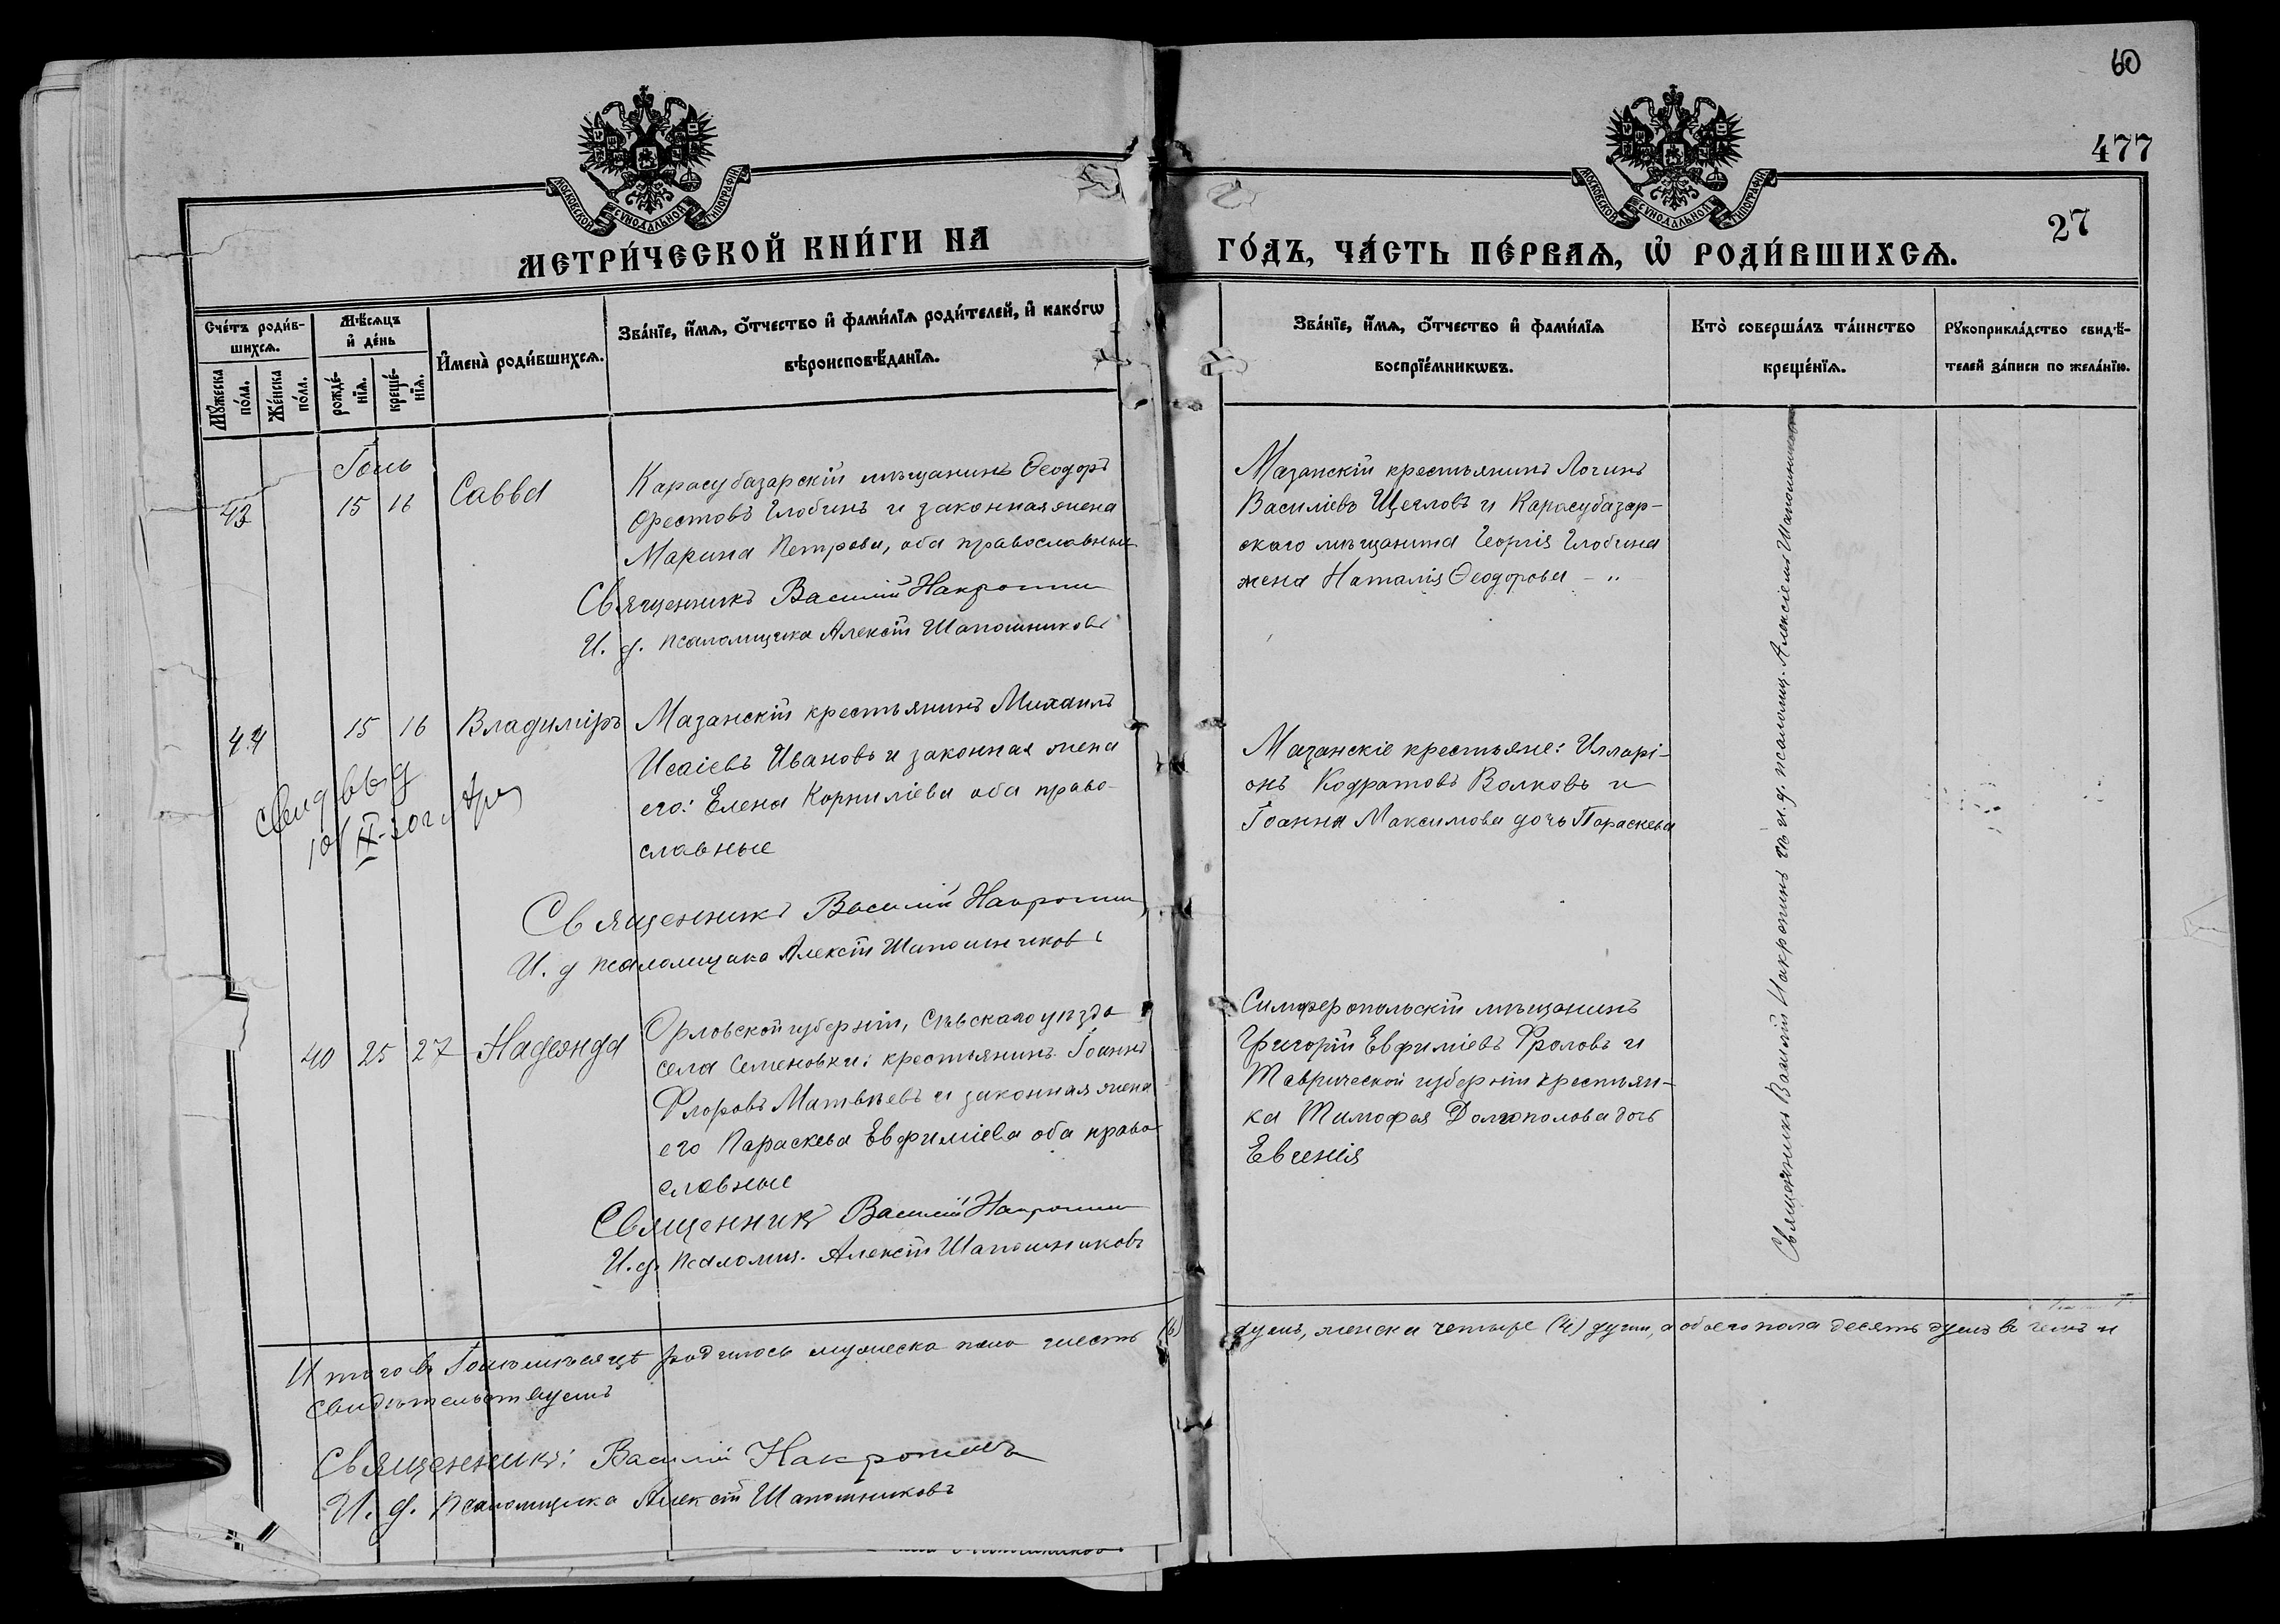 60
477
27
МОСКОВСКОЙ СУНОДАЛЬНОЙ ТИПОГРАФІИ
МОСКОВСКОЙ СУНОДАЛЬНОЙ ТИПОГРАФІИ
МЕТРИ́ЧЕСКОЙ КНИ́ГИ НА
ГО́ДЪ, ЧА́СТЬ ПЕ́РВАѦ, Ѡ҆ РОДИ́ВШИХСѦ.
Сче́тъ роди́в-
шихсѧ.
Мѣ́сѧцъ
и҆ де́нь
Мꙋ́жеска
по́ла.
Же́нска
по́ла.
рожде́-
нїѧ.
креще́-
нїѧ.
И҆мена̀ роди́вшихсѧ.
Зва́нїе, и҆́мѧ, ѻ҆́тчество и҆ фами́лїѧ роди́телей, и҆ како́гѡ
вѣроисповѣ́данїѧ.
Зва́нїе, и҆́мѧ, ѻ҆́тчество и҆ фами́лїѧ
воспрїе́мникѡвъ.
Кто̀ соверша́лъ та́инство
креще́нїѧ.
Рꙋкоприкла́дство свидѣ́-
телей за́писи по жела́нїю.
Іюль
43 15 16 Савва
Карасубазарскій мѣщанинъ Ѳеодоръ
Орестовъ Глобинъ и законная жена
Марина Петрова, оба православные
Священникъ Василій Накропинъ
И. д. псаломщика Алексій Шапошниковъ
Мазанскій крестьянинъ Логинъ
Василіевъ Щегловъ и Карасубазар-
скаго мѣщанина Георгія Глобина
жена Наталія Ѳеодорова - "
44 15 16 Владиміръ
Мазанскій крестьянинъ Михаилъ
Исаіевъ Ивановъ и законная жена
его: Елена Корниліева оба право-
славные
Свид выд
10/IX-20г
Священникъ Василій Накропинъ
И. д псаломщика Алексій Шапошниковъ
Мазанскіе крестьяне: Илларі-
онъ Кодратовъ Волковъ и
Іоанна Максимова дочь Параскева
40 25 27 Надежда
Орловской губерніи, Сѣвскаго уѣзда
села Семеновки: крестьянинъ Іоаннъ
Флоровъ Матвѣевъ и законная жена
его Параскева Евфиміева оба право-
славные
Священникъ Василій Накропинъ
И. д. псаломщ. Алексій Шапошниковъ
Симферопольскій мѣщанинъ
Григорій Евфиміевъ Фроловъ и
Таврической губерніи крестьян-
ка Тимофея Долгополова дочь
Евгенія
Священникъ Василій Накропинъ съ и. д. псаломщ. Алексіемъ Шапошниковымъ
Итого въ Іюлѣ мѣсяцѣ родилось мужеска пола шесть (6)
душъ, женска четыре (4) души, а обоего пола десять душъ въ чемъ и
свидѣтельствуемъ
Священникъ: Василій Накропинъ
И. д. псаломщика Алексій Шапошниковъ